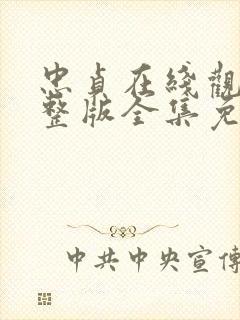 忠貞在綫觀
整版全集免
中共中央宣傳